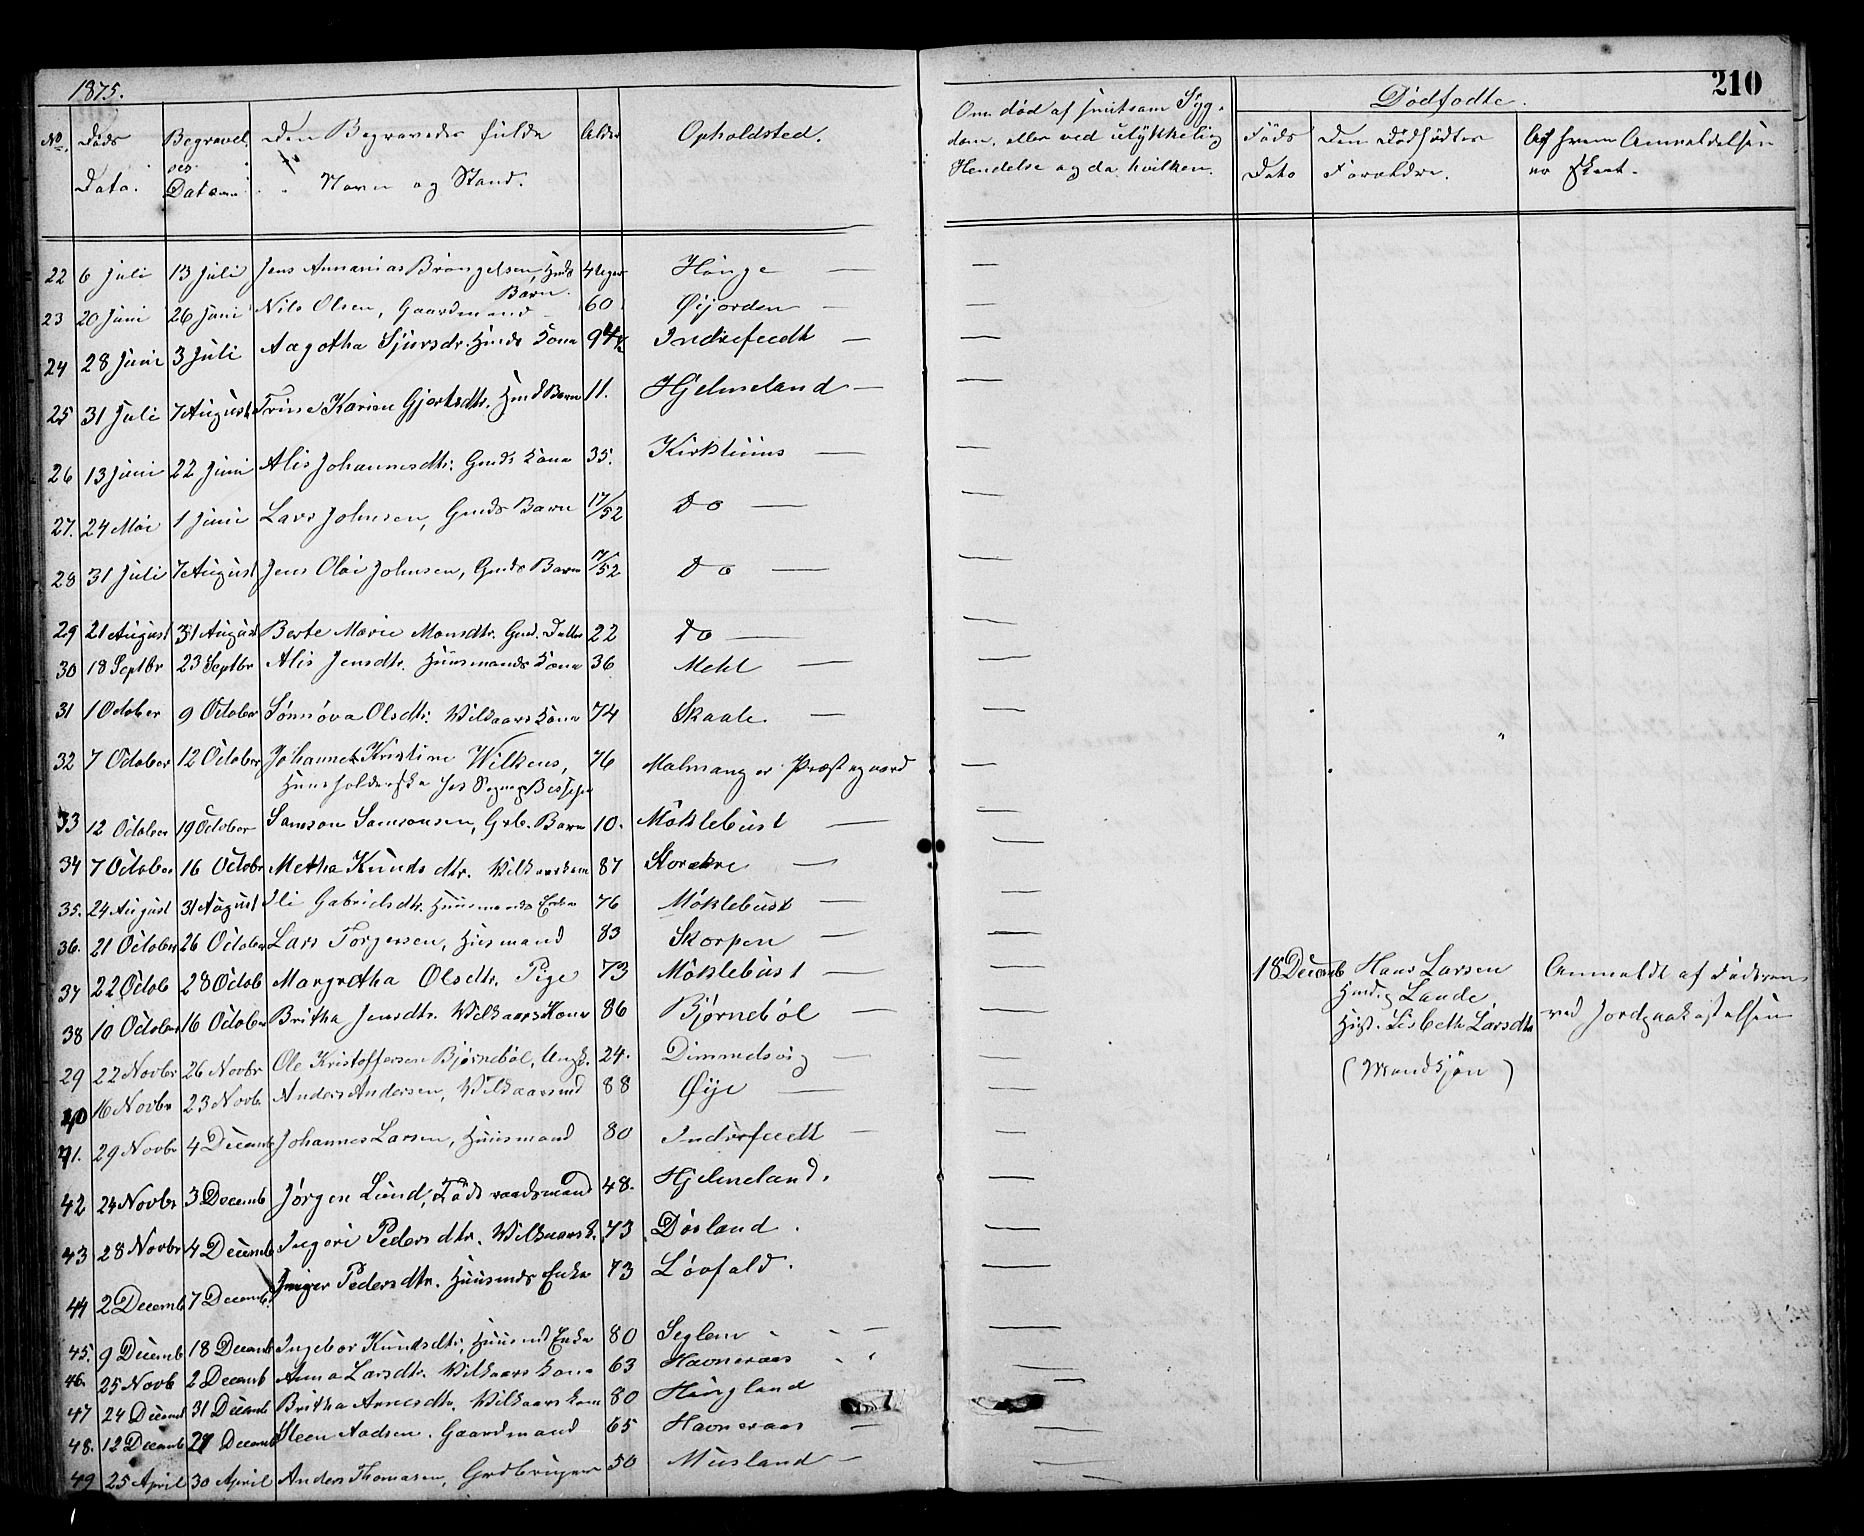 1875.
210
No. Døds Dato. Begravelses Datum Den Begravedes fulde Navn og Stand. Alder Opholdsted. Om død af smitsom Sygdom, eller ved ulykkelig Hendelse og da hvilken. Dødfødte.
Føds Dato Den Dødfødtes Forældre. Af hvem Anmeldelsen er skeet.
22 6 Juli 13 Juli Jens Annanias Brøngelsen, Hmds Barn. 4 Uger Hånge — —
23 20 Juni 26 Juni Nils Olsen, Gaardmand 60 Øijorden — —
24 28 Juni 3 Juli Aagotha Sjursdr. Hmds Kone Indrefeedt — —
25 31 Juli 7 August Trine Karine Gjertsdtr. Hmd Barn 11. Hjelmeland — —
26 13 Juni 22 Juni Alis Johannesdtr. Gmds Kone 35. Kirktuns — —
27. 24 Mai 1 Juni Lars Johnsen, Gmds Barn 17/52 Do — —
28 31 Juli 7 August Jens Olai Johnsen, Gmds Barn 17/52 Do — —
29 21 August 31 August Berte Marie Monsdtr. Gmd. Datter 22 Do — —
30 18 Septbr 23 Septbr Alis Jensdtr. Huusmands Kone 36 Mehl — —
31 1 October 9 October Sønnøva Olsdtr. Vilkaars Kone 74 Skaale. — —
32 7 October 12 October Johanne Kristine Wilkens, 76 Malmanger Præstegaard —
Huusholderske hos Sognep
33 12 October 19 October Samson Samsonsen, Grb. Barn 10. Møklebust — —
34 7 October 16 Octobr Metha Knuds dtr. Vilkaarskone 87 Storekre — —
35. 24 August 31 August Ili Gabrielsdtr. Huusmands Enke 76 Møklebust — —
36. 21 October 26 October Lars Torgersen, Huusmand 83 Skorpen — —
37 22 Octob 28 Octob Margretha Olsdtr. Pige 73 Møklebust — —
38 10 October 16 October Britha Jensdtr. Vilkaars Kone 86 Bjørnebøl — —
29 22 Novbr 26 Novbr Ole Kristoffersen Bjørnebøl, Ungk. 24. Dimmelsvig — —
40 16 Novbr 23 Novb. Anders Andersen, Vilkaarsmd 88 Øije — —
41. 29 Novbr 4 Decemb Johannes Larsen, Huusmand 80 Indrefeedt — —
42 24 Novbr 3 Decemb Jørgen Lund, 48. Hjelmeland. —
43 28 Novbr 4 Decemb Ingeri Peders dtr. Vilkaars K. 73 Døsland. —
44 2 Decemb 7 Decemb. Inger Pedersdtr. Huusmds Enke 73 Løvfald. —
45. 9 Decemb 18 Decemb Ingebor Knudsdtr, Huusmd Enke 80 Seglem — —
46. 25 Novb 2 Decemb Anna Larsdtr. Vilkaars kone 63 Havneraas —
47 24 Decemb 31 Decemb Britha Arnesdtr. Vilkaars kone 80 Haugland —
48. 12 Decemb 21 Decemb Steen Aadsen. Gaardmand 65 Havneraas — —
49 25 April 30 April Anders Thomasen, Grdbruger 50 Musland — —
18 Decemb Hans Larsen Anmeldt af Faderen
Hmd. Lande, ved Jordpaakastelsen
Hust. Lisbeth Larsdtr
(Mandkjøn)